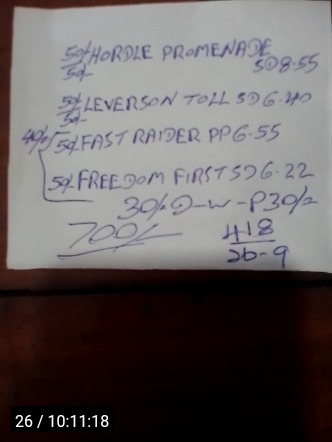 50/- HORDLE PROMENADE
50/- SD 8.55
50/- LEVERSON TOLL SD 6.40
50/-
50/- FAST RAIDER PP 6.55
50/- FREEDOM FIRST SD 6.22
700/-
418
26-9
26 / 10:11:18